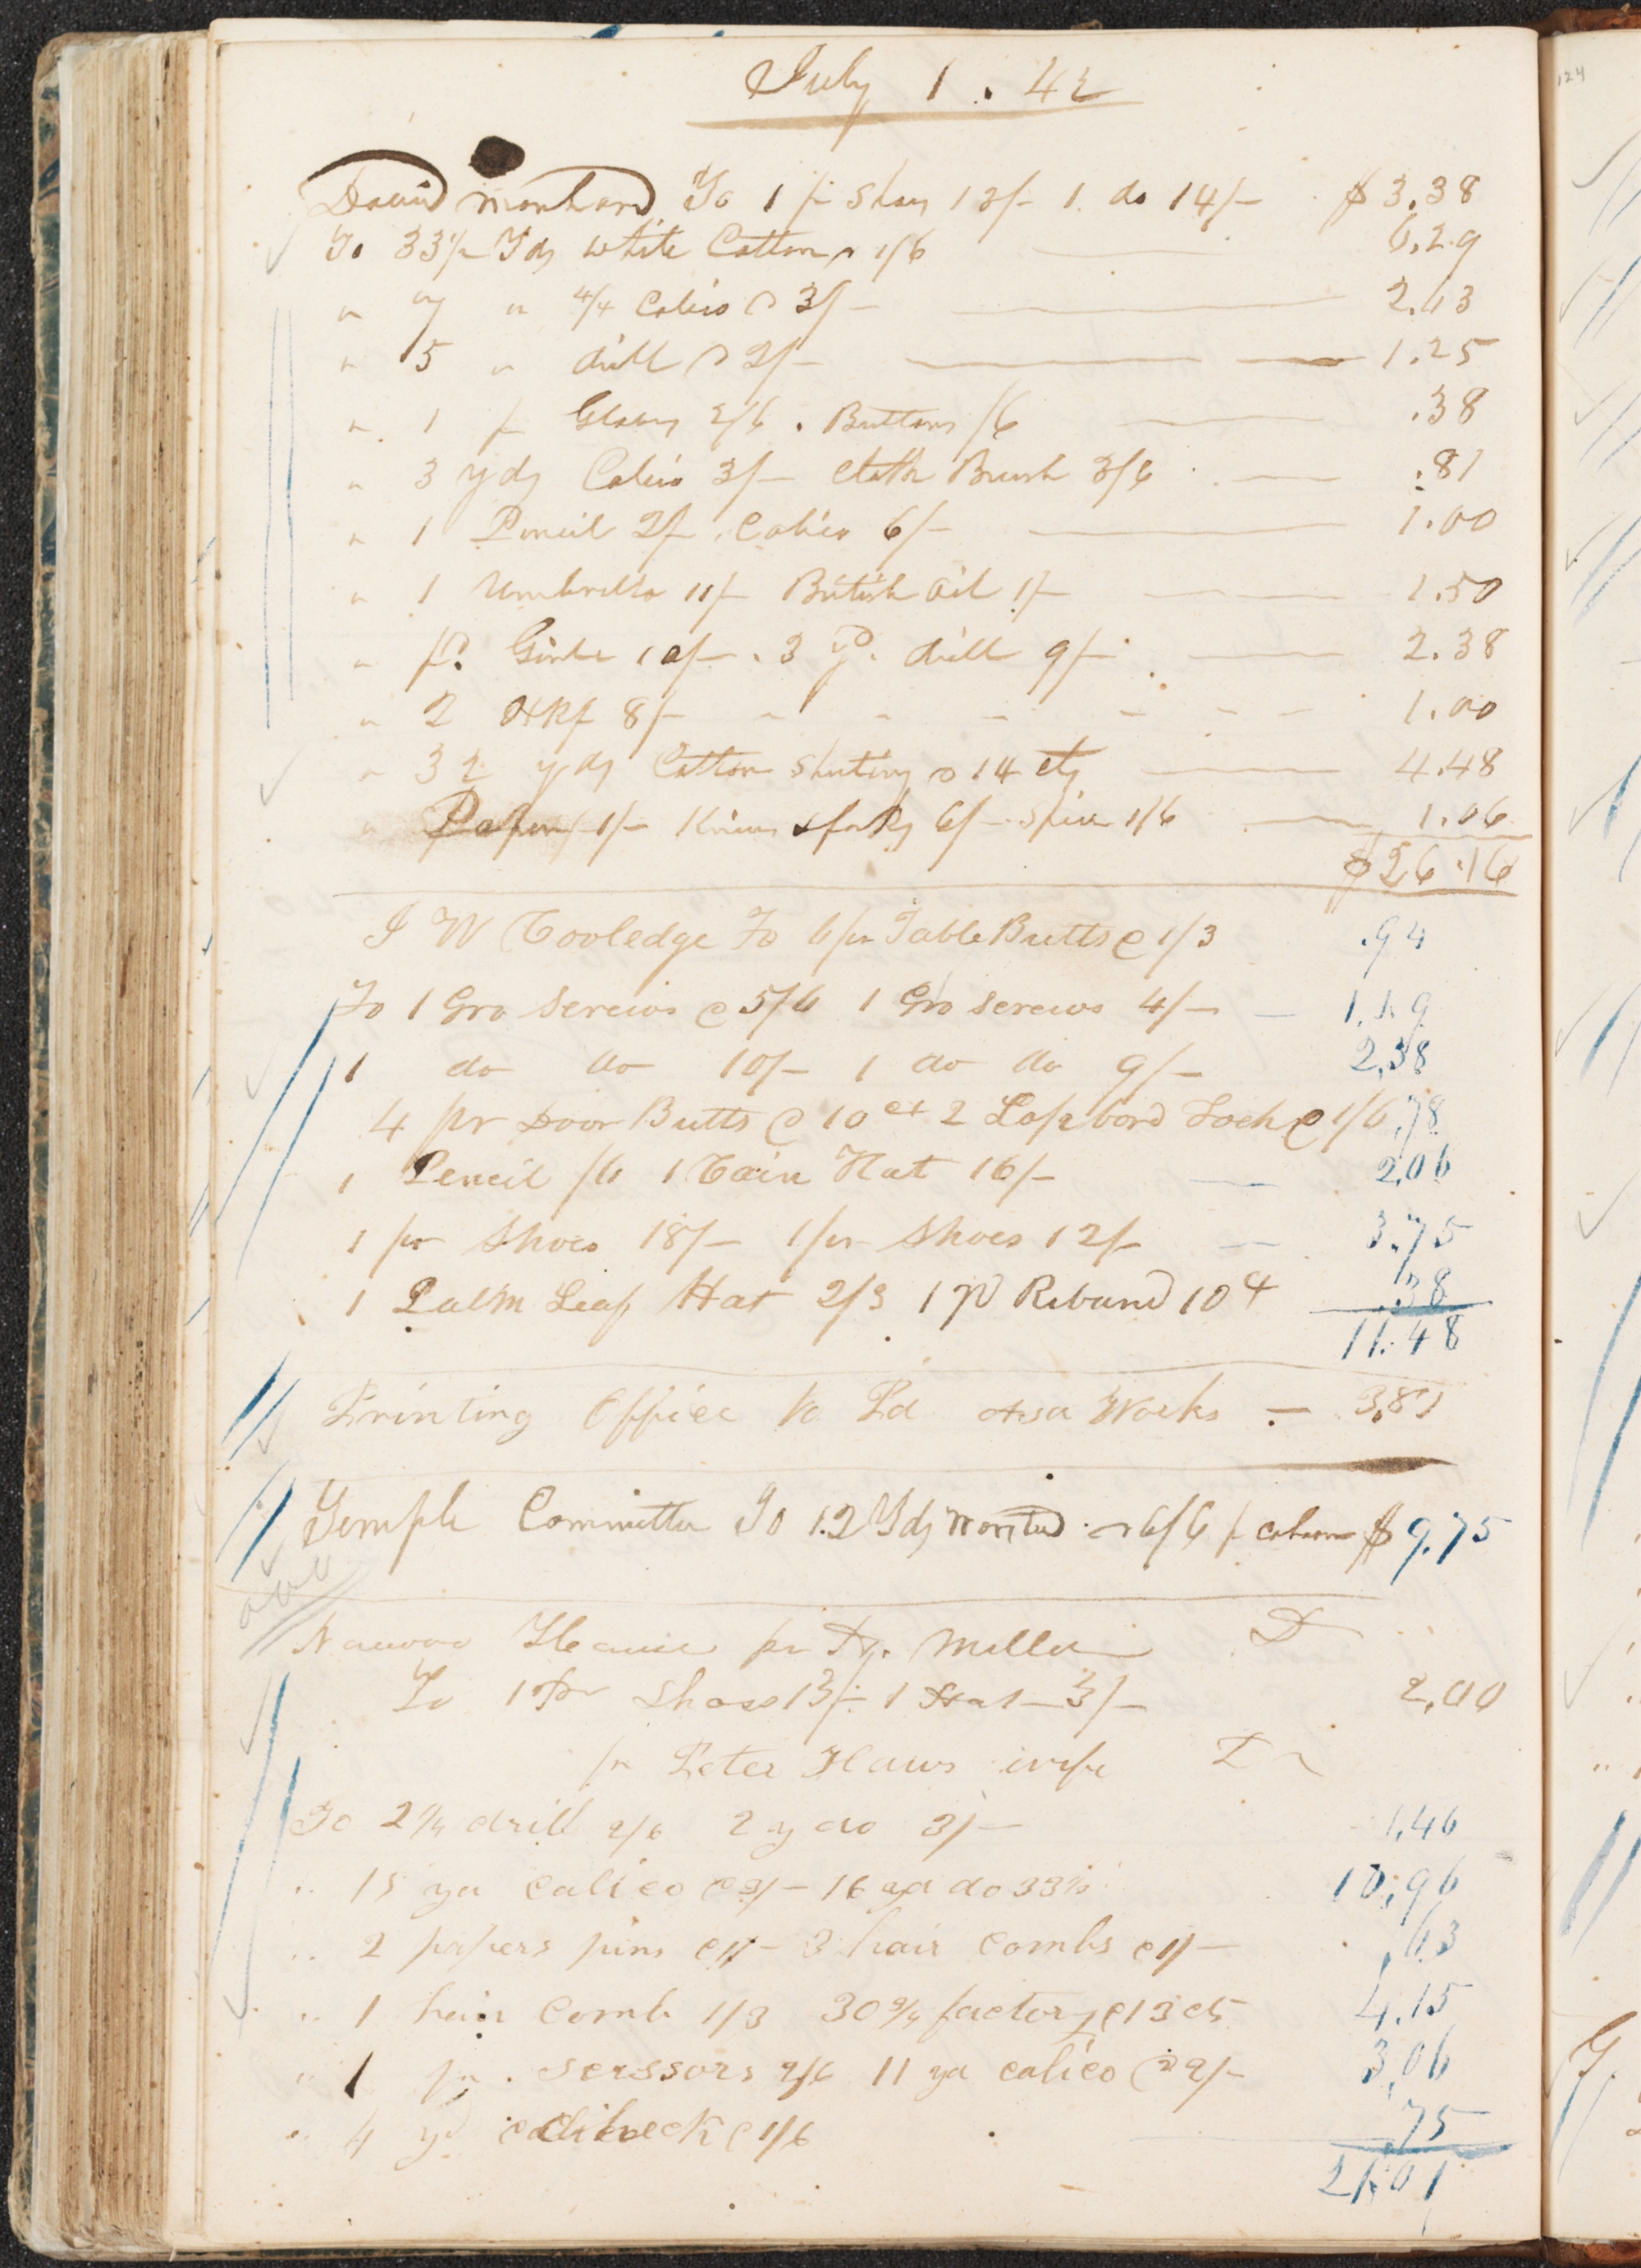 July 1. 42
David Manhard To 1 pr Shoes 13/- 1 do 14/- $3.38
To 33½ Yds white Cotton @ 1/6 6.29
" 7 " 4/4 Calico @ 3/- 2.63
" 5 " drill @ 2/- 1.25
" 1 pr Gloves 2/6. Buttons /6 .38
" 3 yds Calico 3/- Cloth Brush 3/6 .81
" 1 Pencil 2/-. Calico 6/- 1.00
" 1 Umbrella 11/- British Oil 1/- 1.50
" p. 10/-. 3 yd. drill 9/- 2.38
" 2 Hkf 8/- 1.00
" 32 yds Cotton Shirting @ 14 cts 4.48
" Papers 1/- Knives & forks 6/- Spice 1/6 1.06
$26.16
J W Cooledge To 6 pr Table Butts @ 1/3 .94
To 1 Gro Screws @ 5/6 1 Gro Screws 4/- 1.19
1 do do 10/- 1 do do 9/- 2,38
4 pr Door Butts @ 10 ct 2 Cop bord Lock @ 1/6 ,78
1 Pencil /6 1 Hat 16/- 2,06
1 pr Shoes 18/- 1 pr Shoes 12/- 3.75
1 Palm Leaf Hat 2/3 1 yd Riband 10 ct .38
11.48
Printing Office to Pd Works 3,87
Temple Committee To 12 Yds Worsted @ 6/6 pr $9.75
Nauvoo House pr Miller Dr
To 1 Pr Shoes 13/- 1 Hat 3/- 2,00
pr Peter Haws wife Dr
To 2¾ drill 2/6 2 y do 3/- 1,46
" 15 yd calico @ 3/- 16 yd do 33⅓ 10,96
" 2 papers pins @ 1/- 3 hair combs @ 1/- ,63
" 1 hair Comb 1/3 30¾ factory @ 13 cts 4,15
" 1 pr. serssors 2/6 11 yd calico @ 2/- 3,06
" 4 yd check @ 1/6 ,75
21,01
124